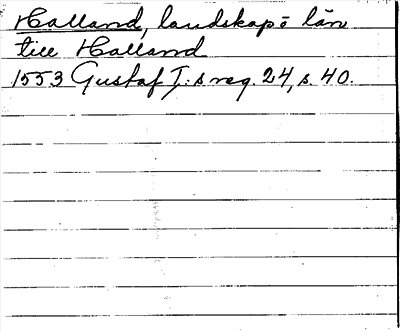 Halland, landskap o län
till Halland
1553 Gustaf I:s reg. 24, s. 40.